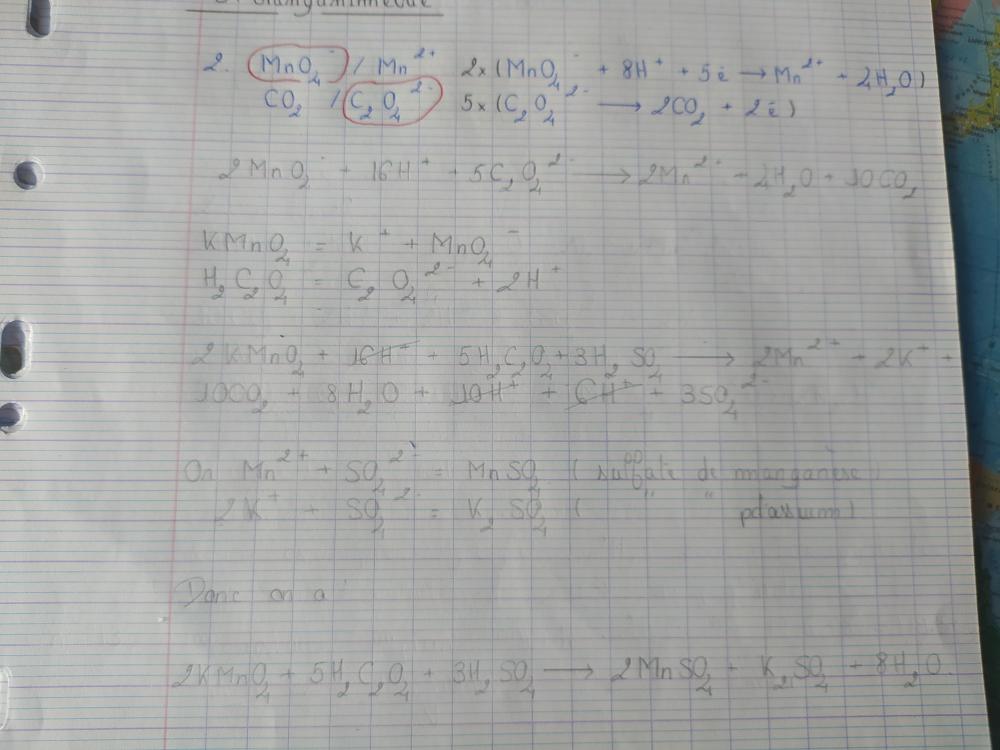 2. MnO₄⁻ / Mn²⁺ 2x (MnO₄⁻ + 8H⁺ + 5é → Mn²⁺ + 4H₂O)
CO₂ / C₂O₄²⁻ 5x (C₂O₄²⁻ → 2CO₂ + 2é)
2MnO₄⁻ + 16H⁺ + 5C₂O₄²⁻ → 2Mn²⁺ + 4H₂O + 10CO₂
KMnO₄ = K⁺ + MnO₄⁻
H₂C₂O₄ = C₂O₄²⁻ + 2H⁺
2KMnO₄ + 16H⁺ + 5H₂C₂O₄ + 3H₂SO₄ → 2Mn²⁺ + 2K⁺ +
10CO₂ + 8H₂O + 10H⁺ + 6H⁺ + 3SO₄²⁻
On Mn²⁺ + SO₄²⁻ = MnSO₄ (sulfate de manganèse)
2K⁺ + SO₄²⁻ = K₂SO₄ ( " " potassium)
Donc on a
2KMnO₄ + 5H₂C₂O₄ + 3H₂SO₄ → 2MnSO₄ + K₂SO₄ + 8H₂O.